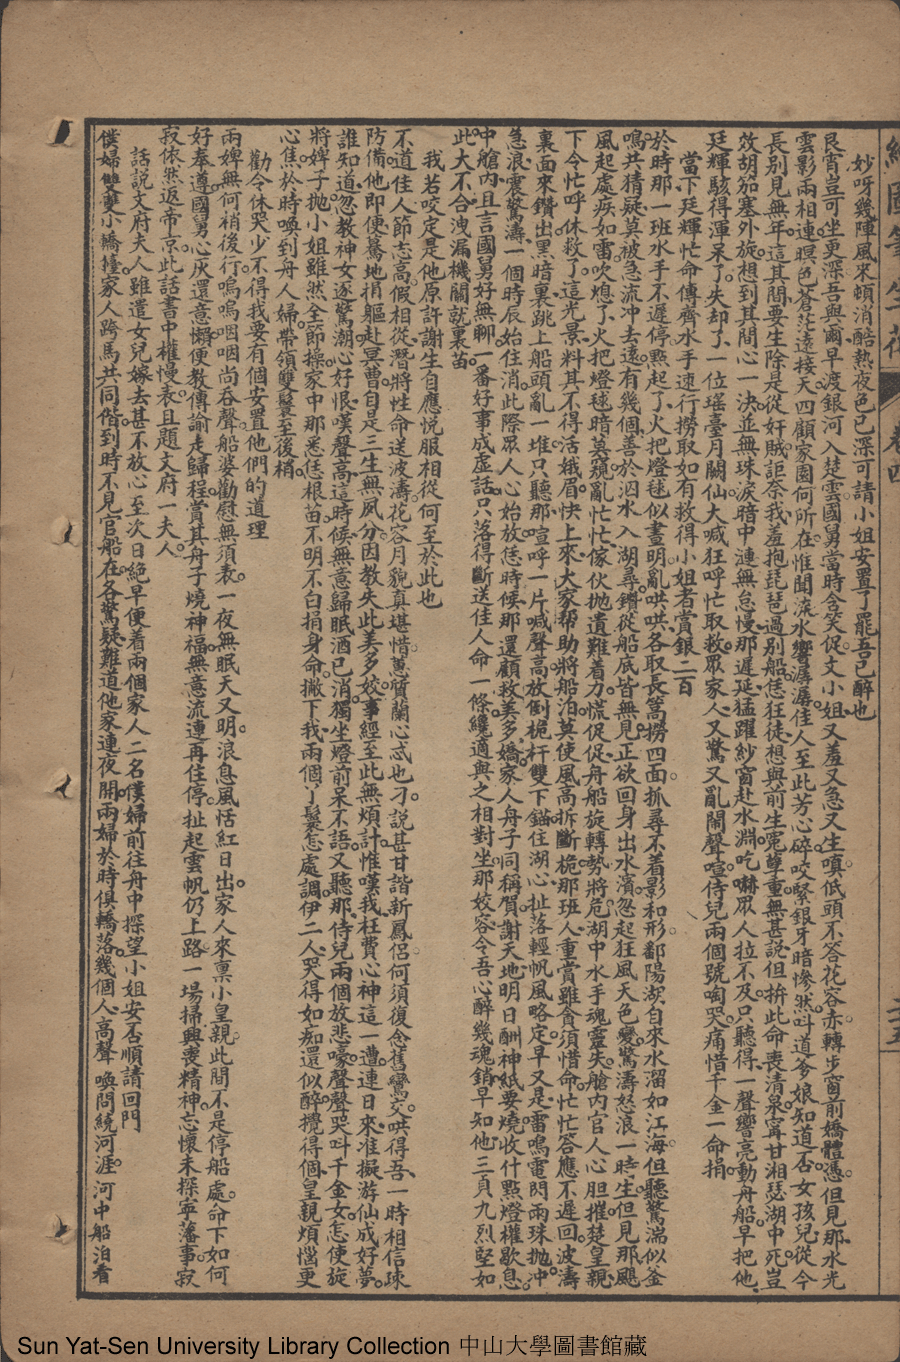 繪圖筆生花 卷四 二五
妙呀幾陣風來頓消酷熱夜色已深可請小姐安置了罷吾已醉也
良宵豈可坐更深吾與爾早渡銀河入楚雲國舅當時含笑促文小姐又羞又急又生嗔低頭不答花容赤轉步窗前嬌體憑但見那水光
雲影兩相連暝色蒼茫遠接天四顧家園何所在惟聞流水響潺潺佳人至此芳心碎咬緊銀牙暗慘然叫道爹娘知道否女孩兒從今
長別見無年這其間要生除是從奸賊詎奈我羞抱琵琶過別船恁狂徒想與前生寃孽重無甚說但拚此命喪清泉寗甘湘瑟湖中死豈
效胡笳塞外旋想到其間心一決並無珠淚暗中連無怠慢那遲延猛躍紗窗赴水淵吃嚇眾人拉不及只聽得一聲響亮動舟船早把他
廷輝駭得渾呆了失却了一位瑤臺月闕仙大喊狂呼忙取救眾家人又驚又亂鬧聲喧侍兒兩個號啕哭痛惜千金一命捐
當下廷輝忙命傳齊水手速行撈取如有救得小姐者賞銀二百
於時那一班水手不遲停點起了火把燈毬似晝明亂哄哄各取長篙撈四面抓尋不着影和形鄱陽湖自來水溜如江海但聽驚湍似釜
鳴共猜疑莫被急流冲去遠有幾個善於泅水入湖尋鑽從船底皆無見正欲回身出水濱忽起狂風天色變驚濤怒浪一時生但見那颶
風起處疾如雷吹熄了火把燈毬暗莫窺亂忙忙傢伙拋遺難着力慌促促舟船旋轉勢將危湖中水手魂靈失艙內官人心胆摧楚皇親
下令忙呼休救了這光景料其不得活娥眉快上來大家帮助將船泊莫使風高拆斷桅那班人重賞雖貪須惜命忙忙答應不遲回波濤
裏面來鑽出黑暗裏跳上船頭亂一堆只聽那喧呼一片喊聲高放倒桅杆雙下錨住湖心扯落輕帆風略定早又是雷鳴電閃雨珠拋冲
急浪震驚濤一個時辰始住消此際眾人心始放恁時候那還顧救美多嬌家人舟子同稱賀謝天地明日酬神紙要燒收什點燈權歇息
中艙內且言國舅好無聊一番好事成虛話只落得斷送佳人命一條纔適與之相對坐那姣容令吾心醉幾魂銷早知他三貞九烈堅如
此大不合洩漏機關就裏苗
我若咬定是他原許謝生自應悅服相從何至於此也
不道佳人節志高假相從潛將性命送波濤花容月貌真堪惜蕙質蘭心忒也刁說甚甘諧新鳳侶何須復念舊鸞交哄得吾一時相信疎
防備他即便驀地捐軀赴冥曹自是三生無夙分因教失此美多姣事經至此無煩計惟嘆我枉費心神這一遭連日來准擬游仙成好夢
誰知道忽教神女逐驚潮心好恨嘆聲高這時候無意歸眠酒已消獨坐燈前呆不語又聽那侍兒兩個放悲嚎聲聲哭叫千金女怎使旋
將婢子拋小姐雖然全節操家中那悉恁根苗不明不白捐身命撇下我兩個丫鬟怎處調伊二人哭得如痴還似醉攪得個皇親煩惱更
心焦於時喚到舟人婦帶領雙鬟至後梢
勸令休哭少不得我要有個安置他們的道理
兩婢無何稍後行嗚嗚咽咽尚吞聲船婆勸慰無須表一夜無眠天又明浪息風恬紅日出家人來禀小皇親此間不是停船處命下如何
好奉遵國舅心厌還意懶便教傳諭走歸程賞其舟子燒神福無意流連再住停扯起雲帆仍上路一場掃興喪精神忘懷未探寧藩事寂
寂依然返帝京此話書中權慢表且題文府一夫人
話說文府夫人雖遣女兒嫁去甚不放心至次日絕早便着兩個家人二名僕婦前往舟中探望小姐安否順請回門
僕婦雙雙小轎擡家人跨馬共同偕到時不見官船在各驚疑難道他家連夜開兩婦於時俱轎落幾個人高聲喚問繞河涯河中船泊看
Sun Yat-Sen University Library Collection 中山大學圖書館藏